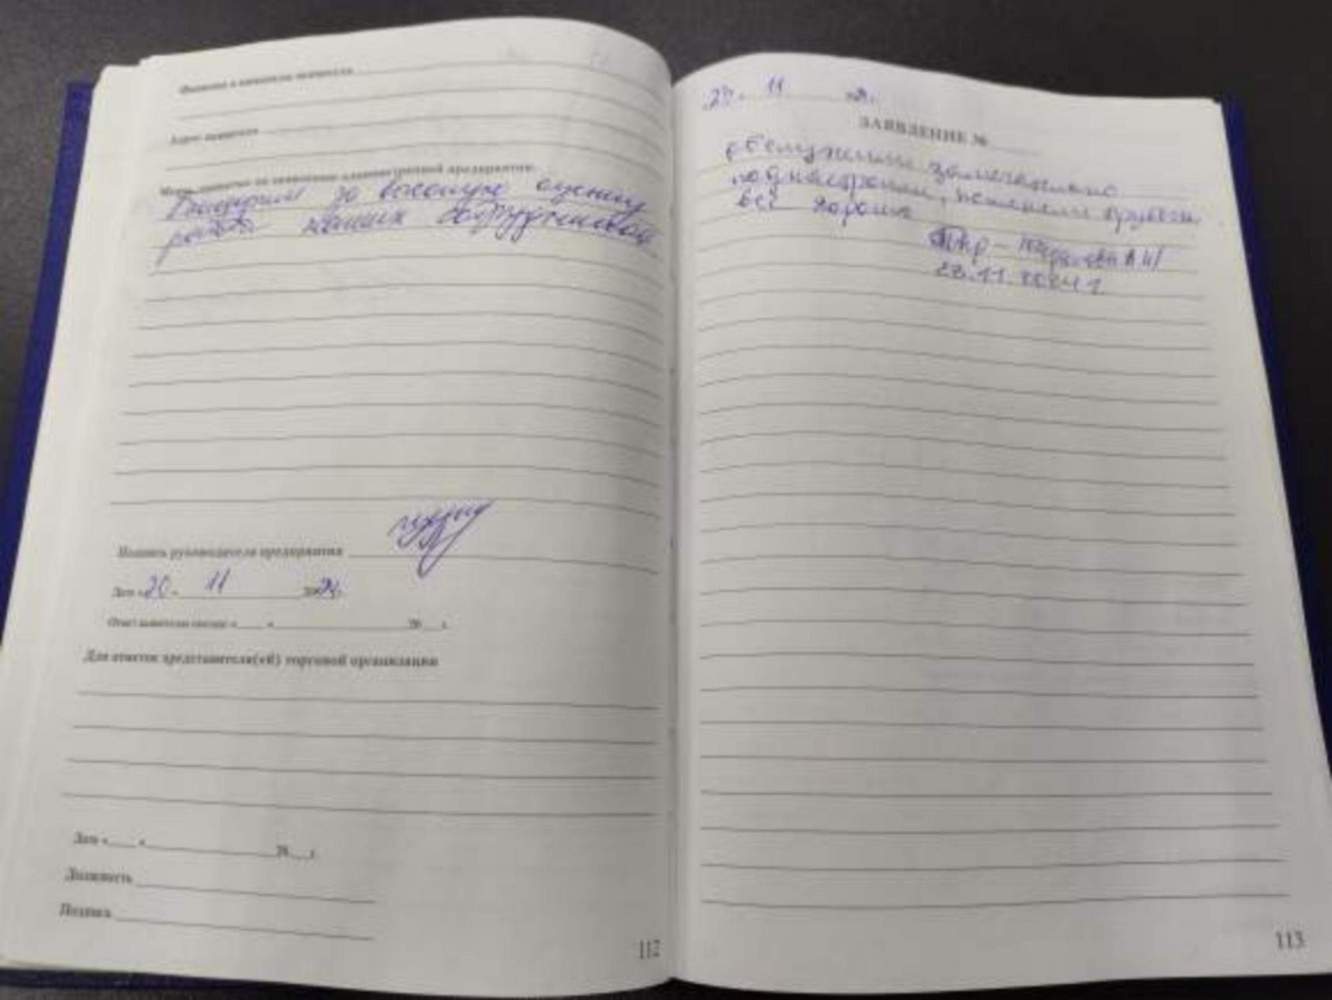 Фамилия и инициалы заявителя
Адрес заявителя
Меры, принятые по заявлению администрацией предприятия:
Благодарим за высокую оценку
работы наших сотрудников
Подпись руководителя предприятия
Дата «20» 11 2024г.
Ответ заявителю послан « » 20 г.
Для отметок представителя(ей) торговой организации
Дата « » 20 г.
Должность
Подпись
112
11
ЗАЯВЛЕНИЕ №
обслужили замечательно
всё хорошо
11.2024 г
113